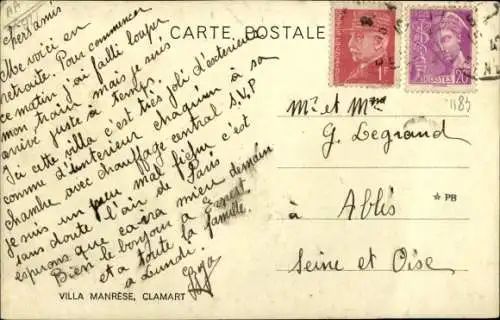 AA
Chers amis
Me voici en
retraite. Pour commencer
ce matin j'ai failli louper
mon train mais je suis
arrivé juste à temps.
Ici cette villa c'est très joli d'extérieur
comme d'intérieur chaqu'un à sa
chambre avec chauffage central S.V.P
Je suis un peu mal fichu c'est
sans doute l'air de Paris
esperons que ca ira mieux demain
Bien le bonjour a Ernest
et a toute la famille.
a Lundi.
VILLA MANRÈSE, CLAMART
CARTE POSTALE
POSTES 20c
1183
Mr et Mme
G. Legrand
* PB
à Ablis
Seine et Oise